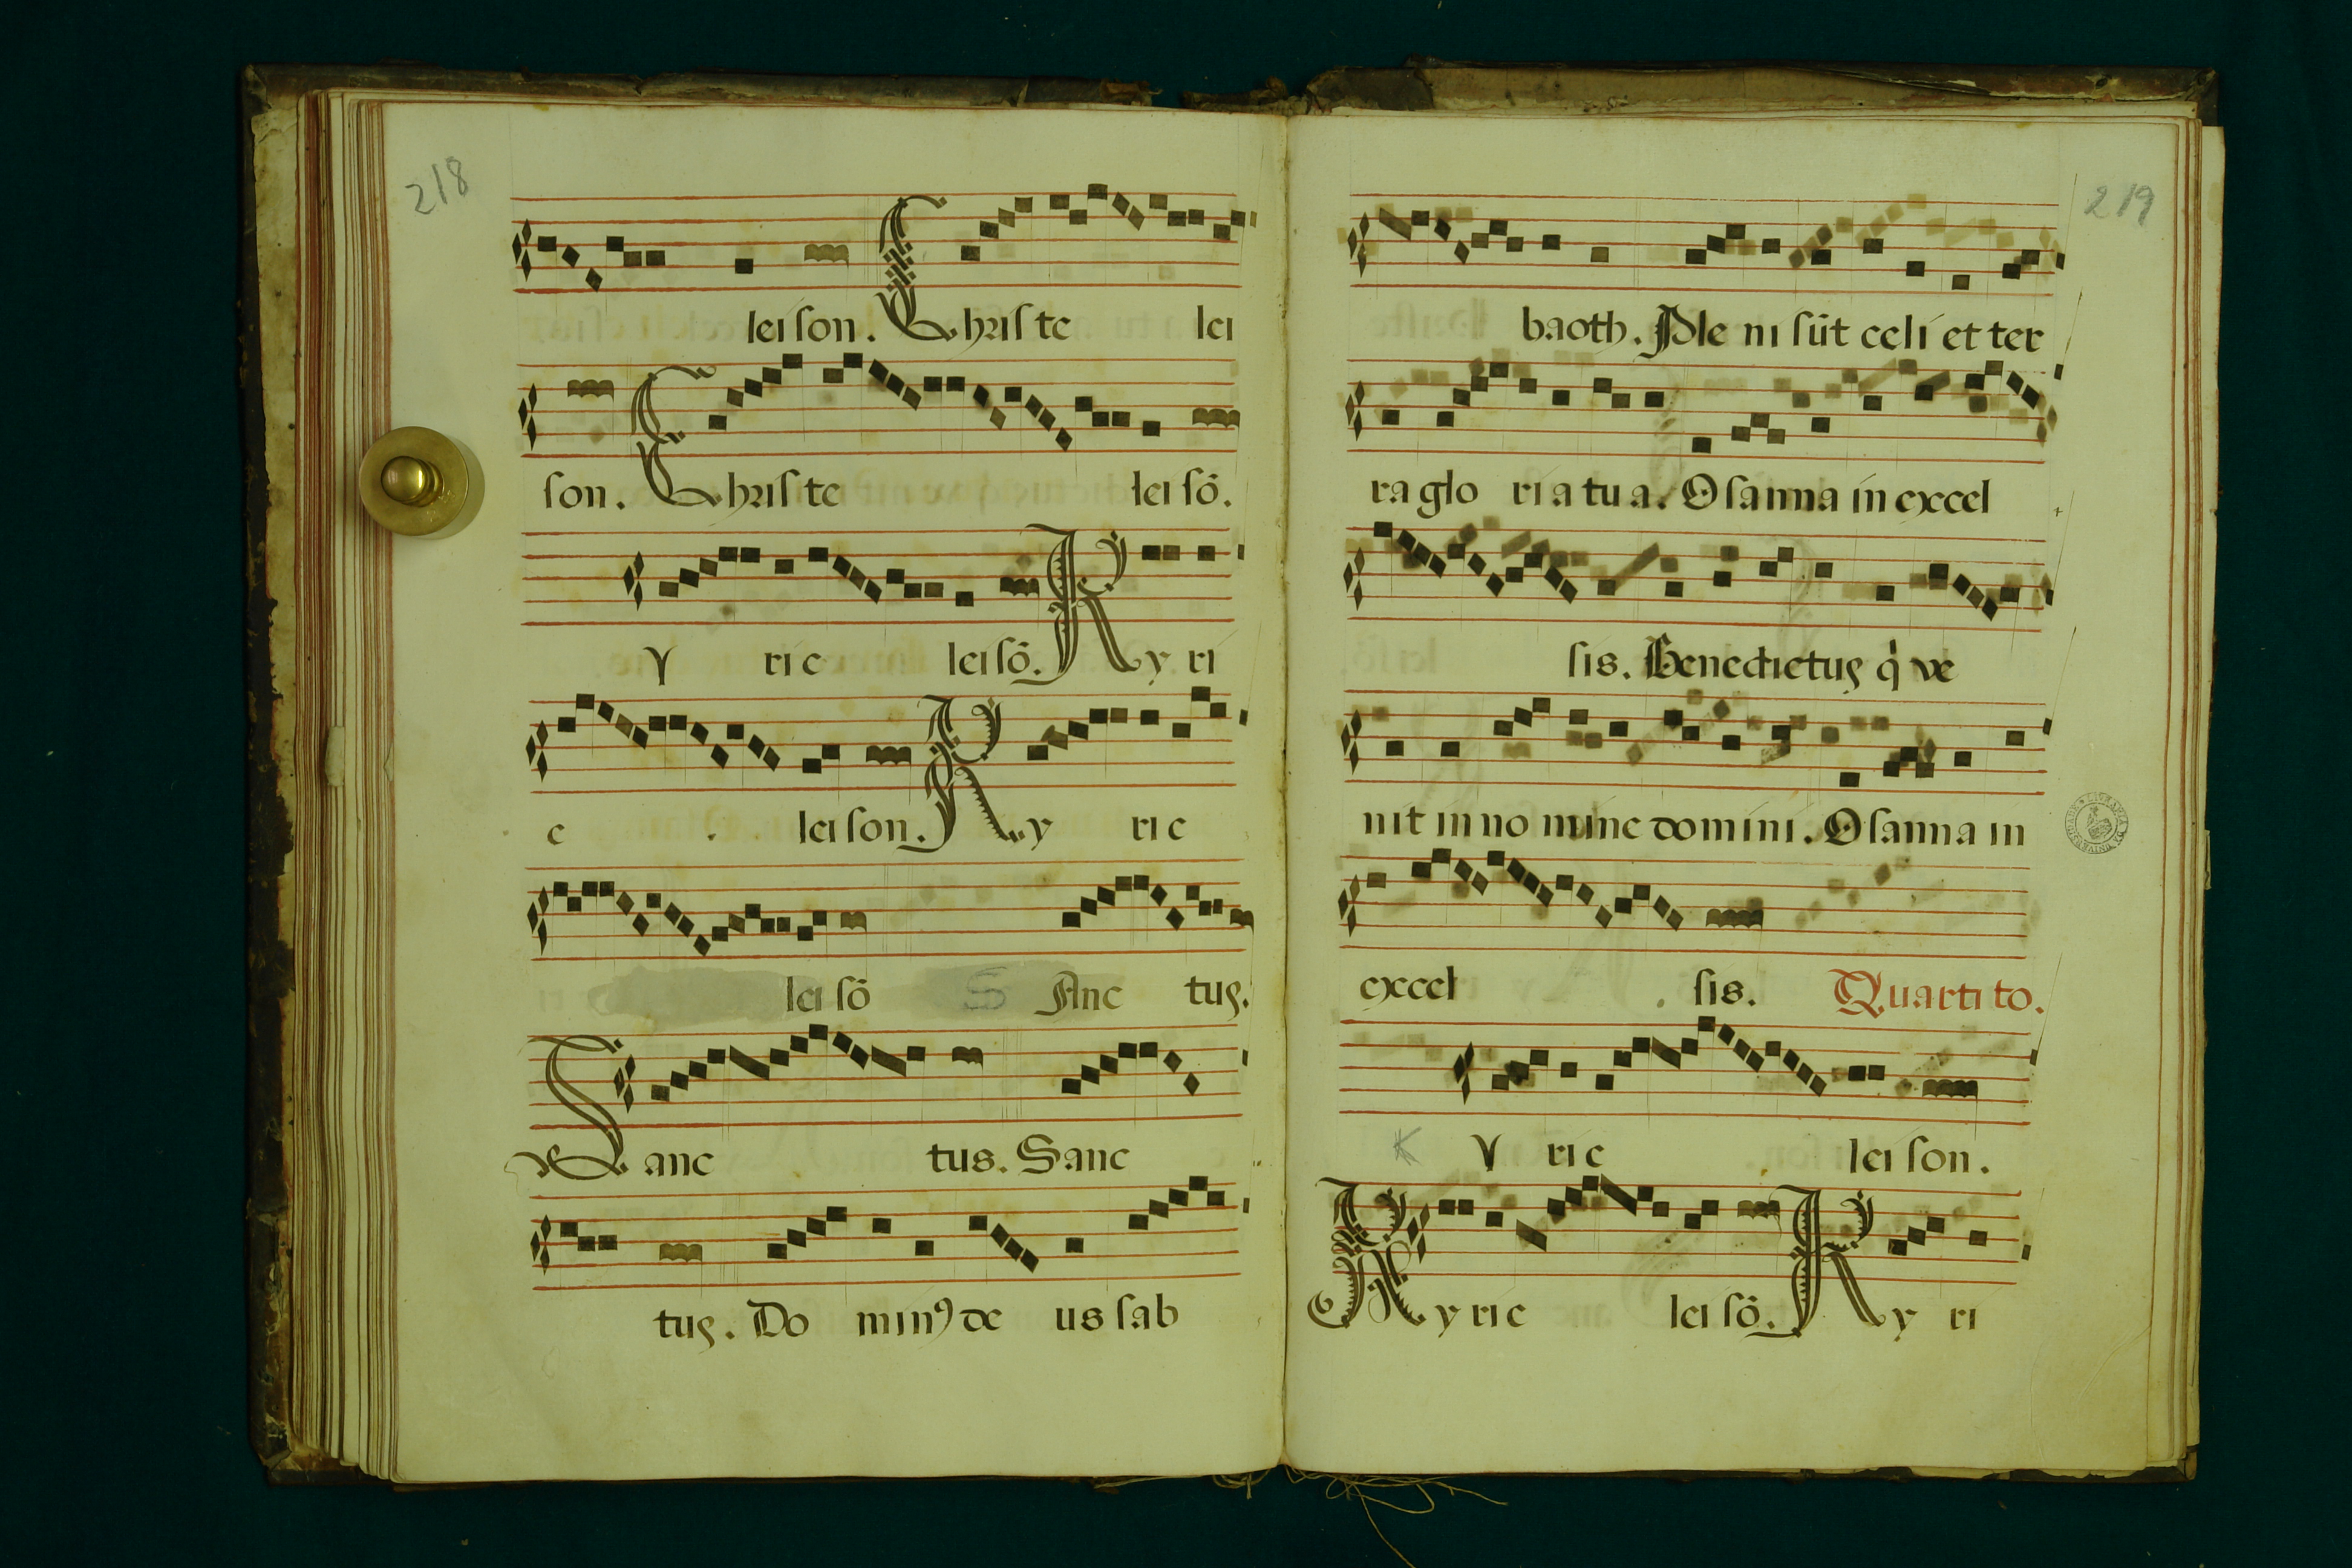 218
leison. Christe lei
son. Christe leisõ.
y rie leisõ. Kyri
e leison. Ky rie
leisõ S Anc tuꝰ.
Sanc tus. Sanc
tuꝰ. Do minꝰ de us sab
219
baoth. Ple ni sũt celi et ter
ra glo ria tua. Osanna in excel
sis. Benedictuꝰ q̇ ve
nit in no mine domini. Osanna in
excel sis. Quarti to.
K y rie leison.
Kyrie leisõ. Ky ri